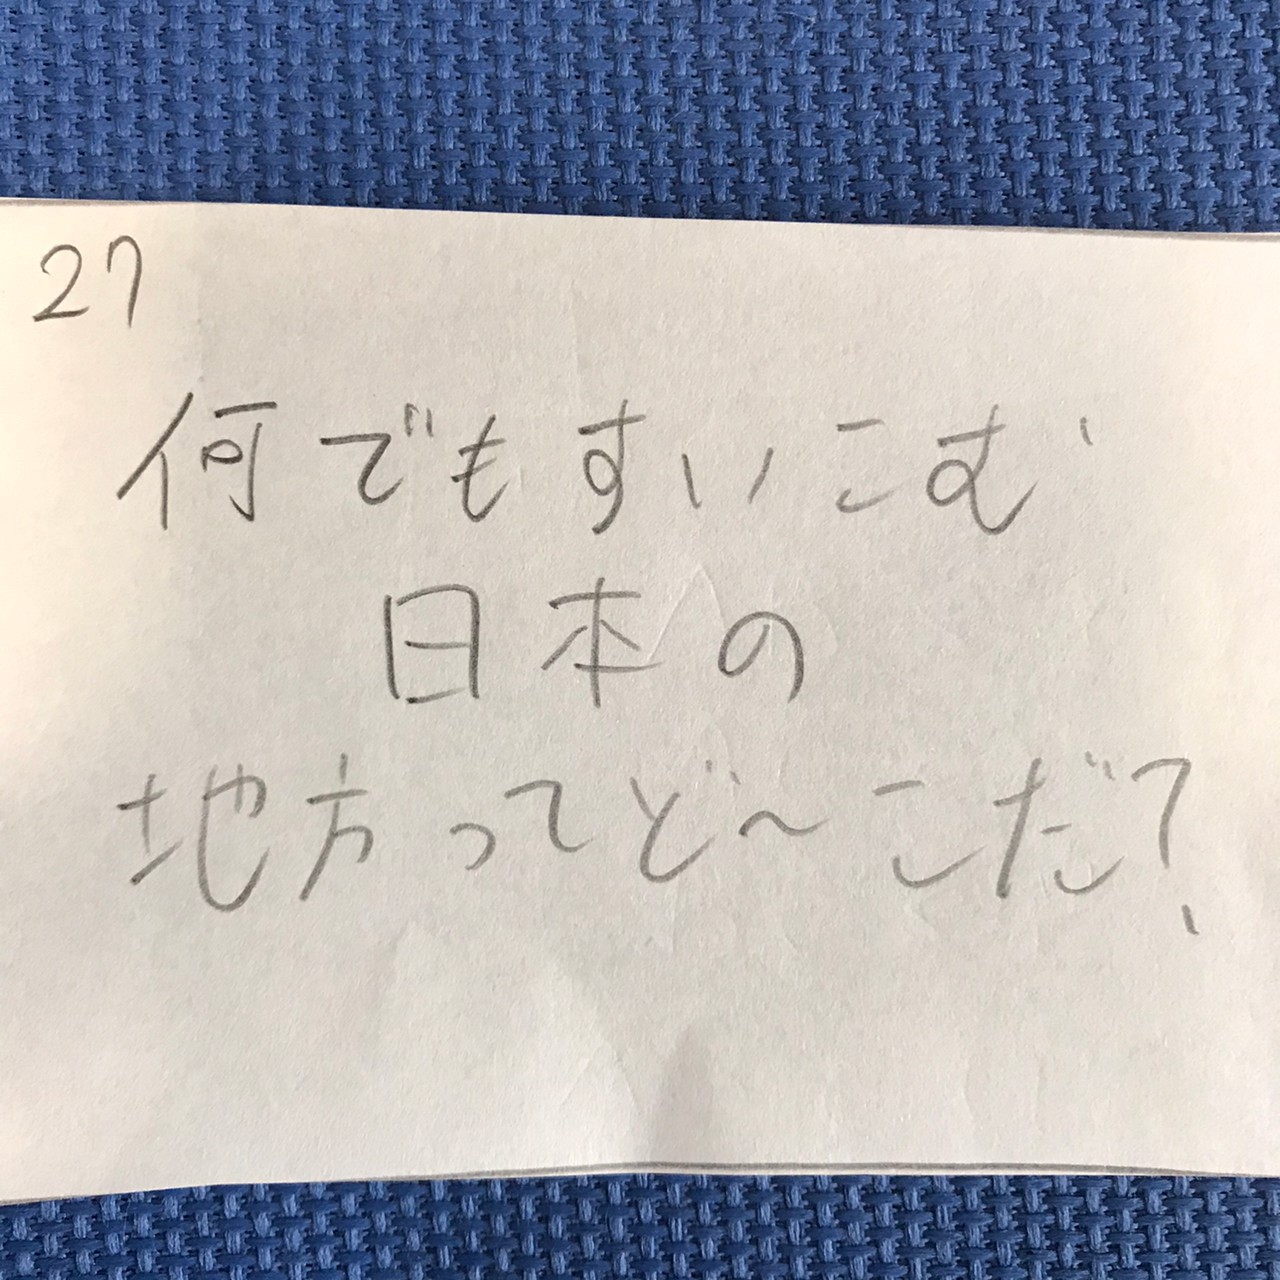 27
何でもすいこむ
日本の
地方ってど〜こだ?